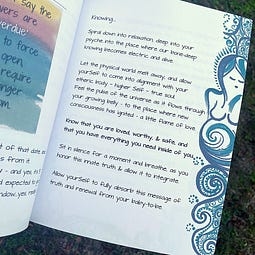 say the
vers are
verdue'
to force
open
require
nger
om.
of that date as
s from it
- and yes, it's
d expected to g
indow, yes mast
Knowing...
Spiral down into relaxation, deep into your
psyche into the place where our bone-deep
knowing becomes electric and alive.
Let the physical world melt away, and allow
yourSelf to come into alignment with your
etheric body - higher Self - true soul.
Feel the pulse of the universe as it flows through
your growing belly - to the place where new
consciousness has ignited - a little flame of love.
Know that you are loved, worthy, & safe, and
that you have everything you need inside of you.
Sit in silence for a moment and breathe, as you
honor this innate truth & allow it to integrate.
Allow yourSelf to fully absorb this message of
truth and renewal from your baby-to-be.